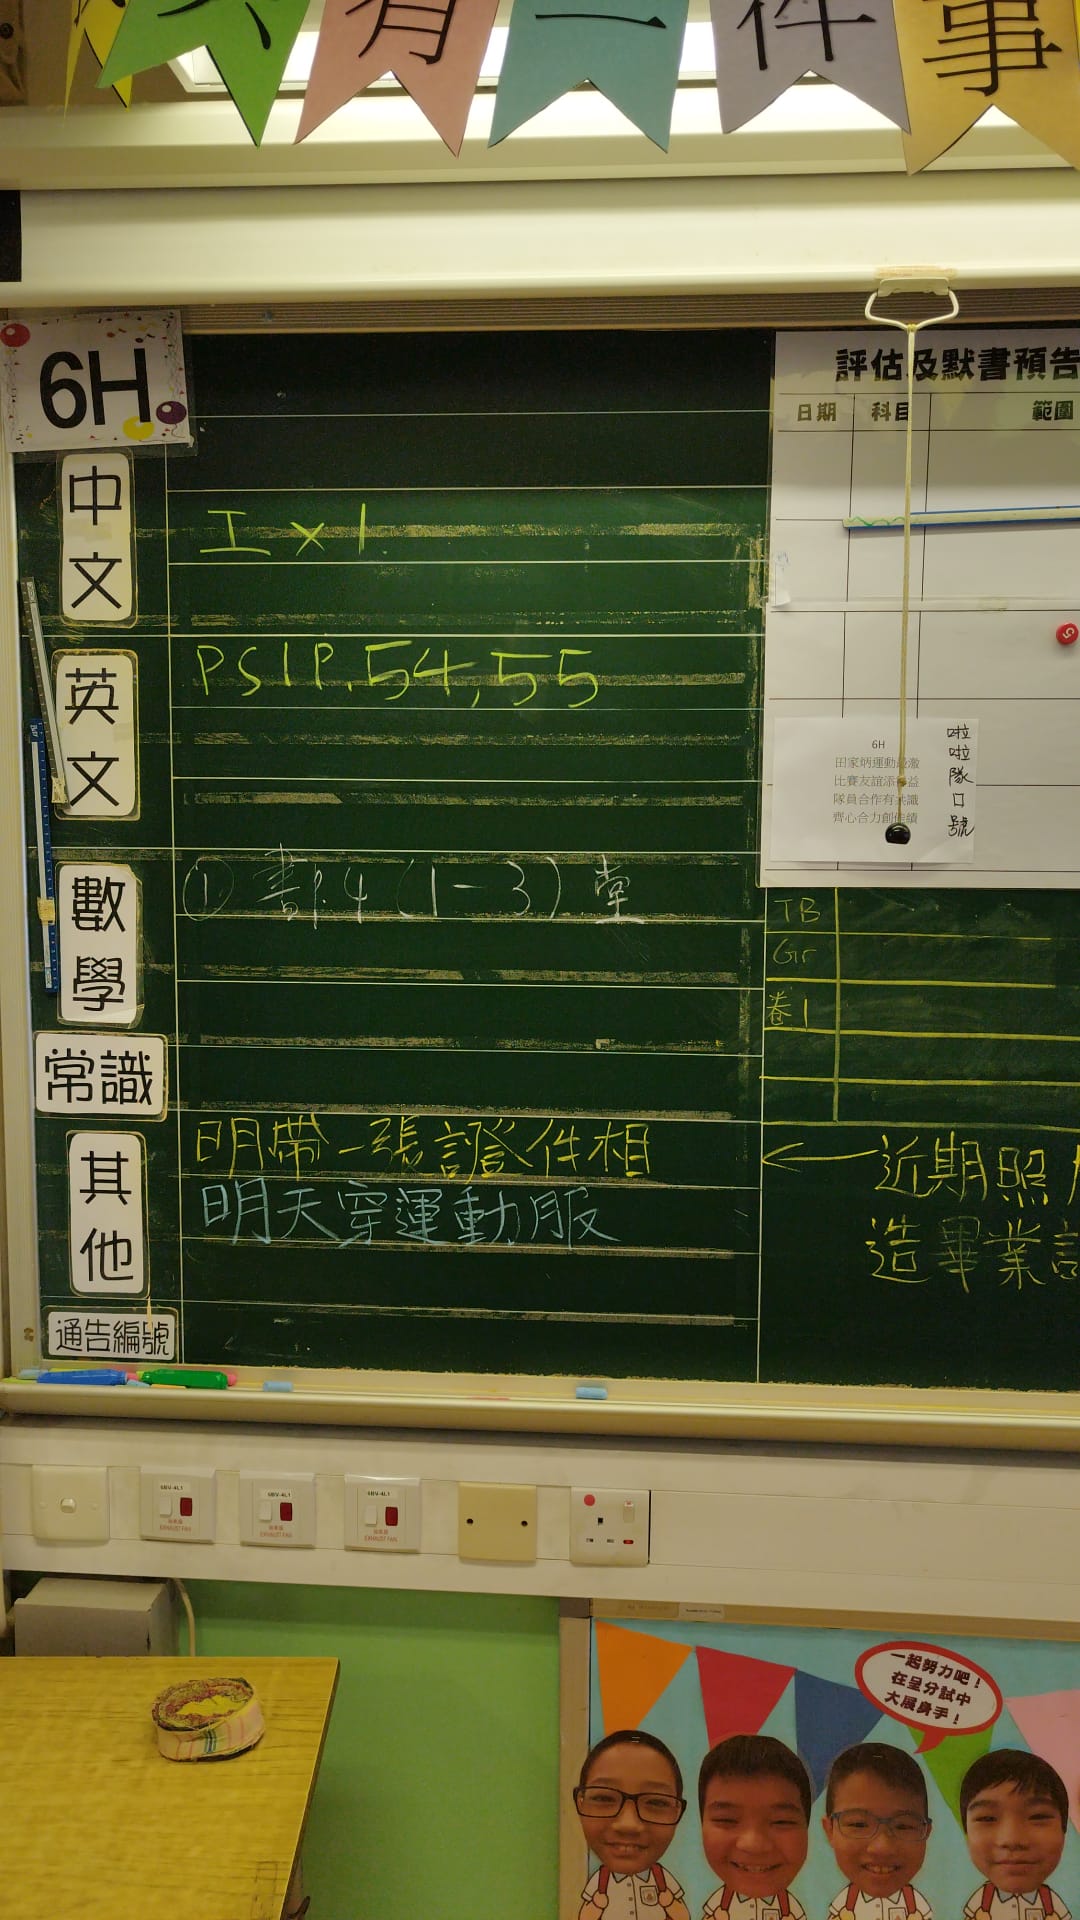 有一件事
6H
中文
工 x 1.
英文
PSIP.54,55
數學
① 書P.4 (1-3) 堂
常識
其他
明帶一張證件相
明天穿運動服
通告編號
評估及默書預告
日期 科目 範圍
6H
田家炳運動
比賽友誼添 益
隊員合作有共識
齊心合力創佳績
啦啦隊口號
TB
Gr
卷1
←近期照
造畢業
6BV-4L1
抽氣扇
EXHAUST FAN
6BV-4L1
抽氣扇
EXHAUST FAN
6BV-4L1
抽氣扇
EXHAUST FAN
一起努力吧!
在呈分試中
大展身手!